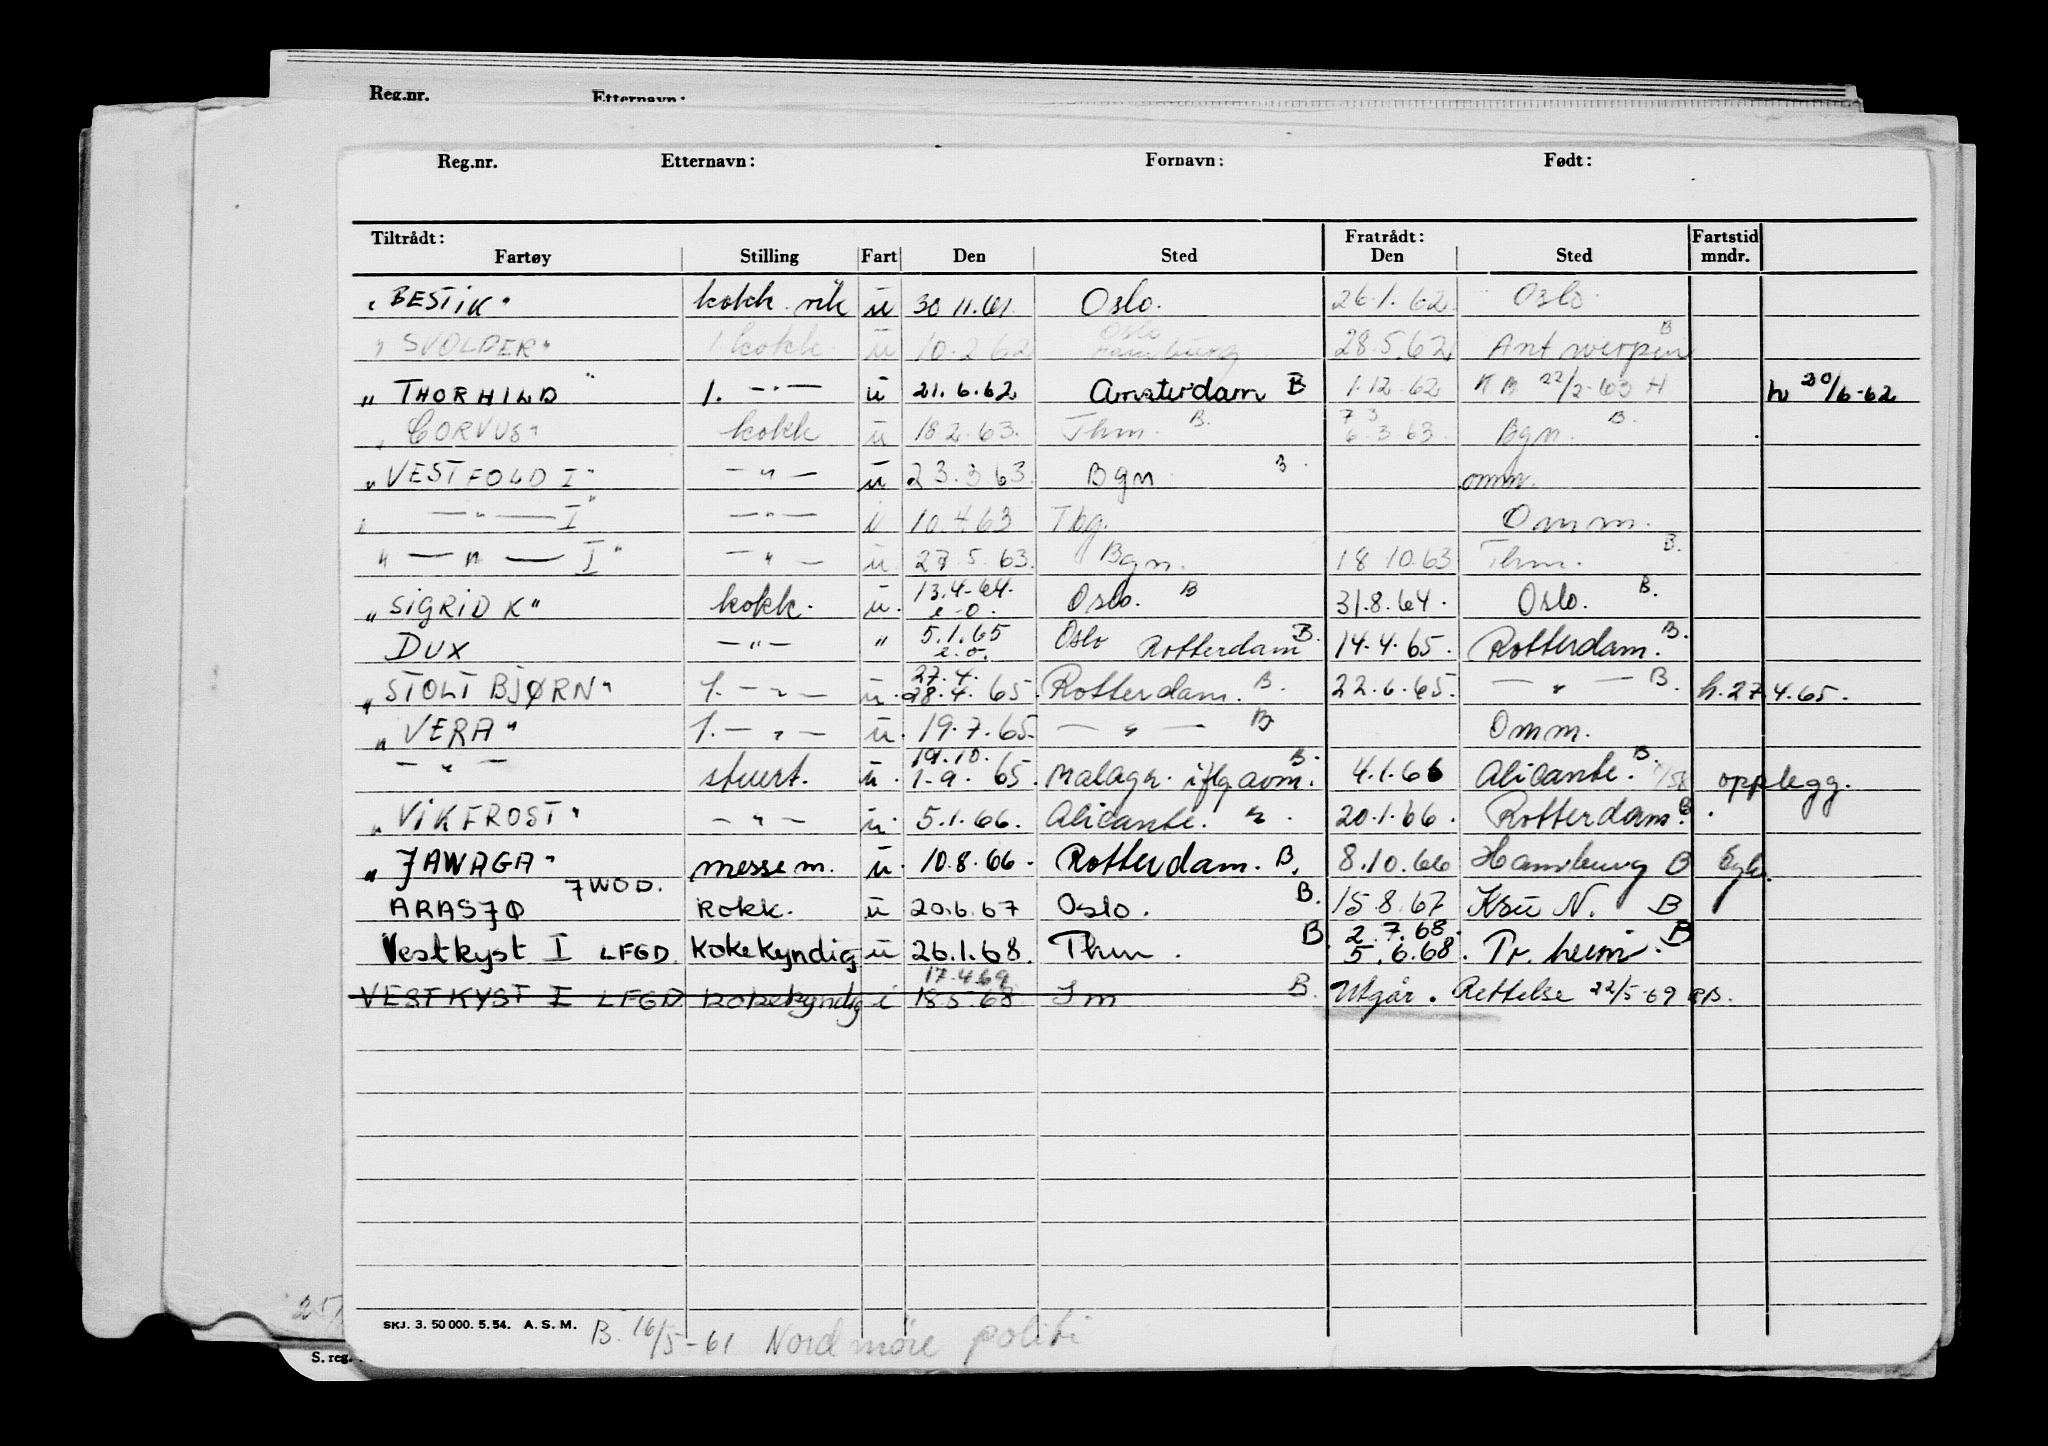 Reg.nr. Etternavn:
Reg.nr. Etternavn: Fornavn: Født:
Tiltrådt: Fratrådt: Fartstid
Fartøy Stilling Fart Den Sted Den Sted mndr.
"BESTIK" kokk ü 30.11.61 Oslo. 26.1.62 Oslo.
"SVOLDER" 1 kokk. ü 10.2.62 Oslo Hamburg 28.5.62 Antwerpen B
"THORHILD" 1. —"— ü 21.6.62 Amsterdam B 1.12.62 22/2-63 H h 20/6-62
"CORVUS" kokk ü 18.2.63. Thm. B. 7 3 6.3.63. Bgn. B.
"VESTFOLD I" —"— ü 23.3.63. Bgn B. omm.
" —"— I" —"— i 10.4.63 Tbg. Omm.
" —"— I" —"— ü 27.5.63. Bgn. 18.10.63 Thm. B.
"SIGRID K" kokk. ü. 13.4-64. e.o. Oslo. B 31.8.64. Oslo. B.
DUX —"— " 5.1.65 e.o. Oslo Rotterdam B. 14.4.65. Rotterdam. B.
"STOLT BJØRN" 1. —"— ü. 27.4. 28.4.65. Rotterdam. B. 22.6.65. —"— B. h.27.4.65.
"VERA" 1. —"— ü. 19.7.65. —"— B Omm.
—"— stuert. ü. 19.10. 1.9.65. Malaga iflg avm. B. 4.1.66 Alicante. B. opplegg.
"VIKFROST" —"— ü. 5.1.66. Alicante. " . 20.1.66. Rotterdam. B.
"JAWAGA" messe m. ü. 10.8.66. Rotterdam. B. 8.10.66 Hamburg B Syk.
ARASJØ JWOD. Kokk. ü 20.6.67 Oslo. B. 15.8.67 Krsu N. B
Vestkyst I LFGD. Kokekyndig ü 26.1.68. Thm. B. 2.7.68. 5.6.68. Tr.heim. B
VESTKYST I LFGD kokekyndig i 17.4.69 18.5.68 Sm B. Utgår. Rettelse 22/5-69 PB.
SKJ. 3. 50 000. 5. 54. A. S. M. B. 16/5-61 Nordmøre politi
S. reg.